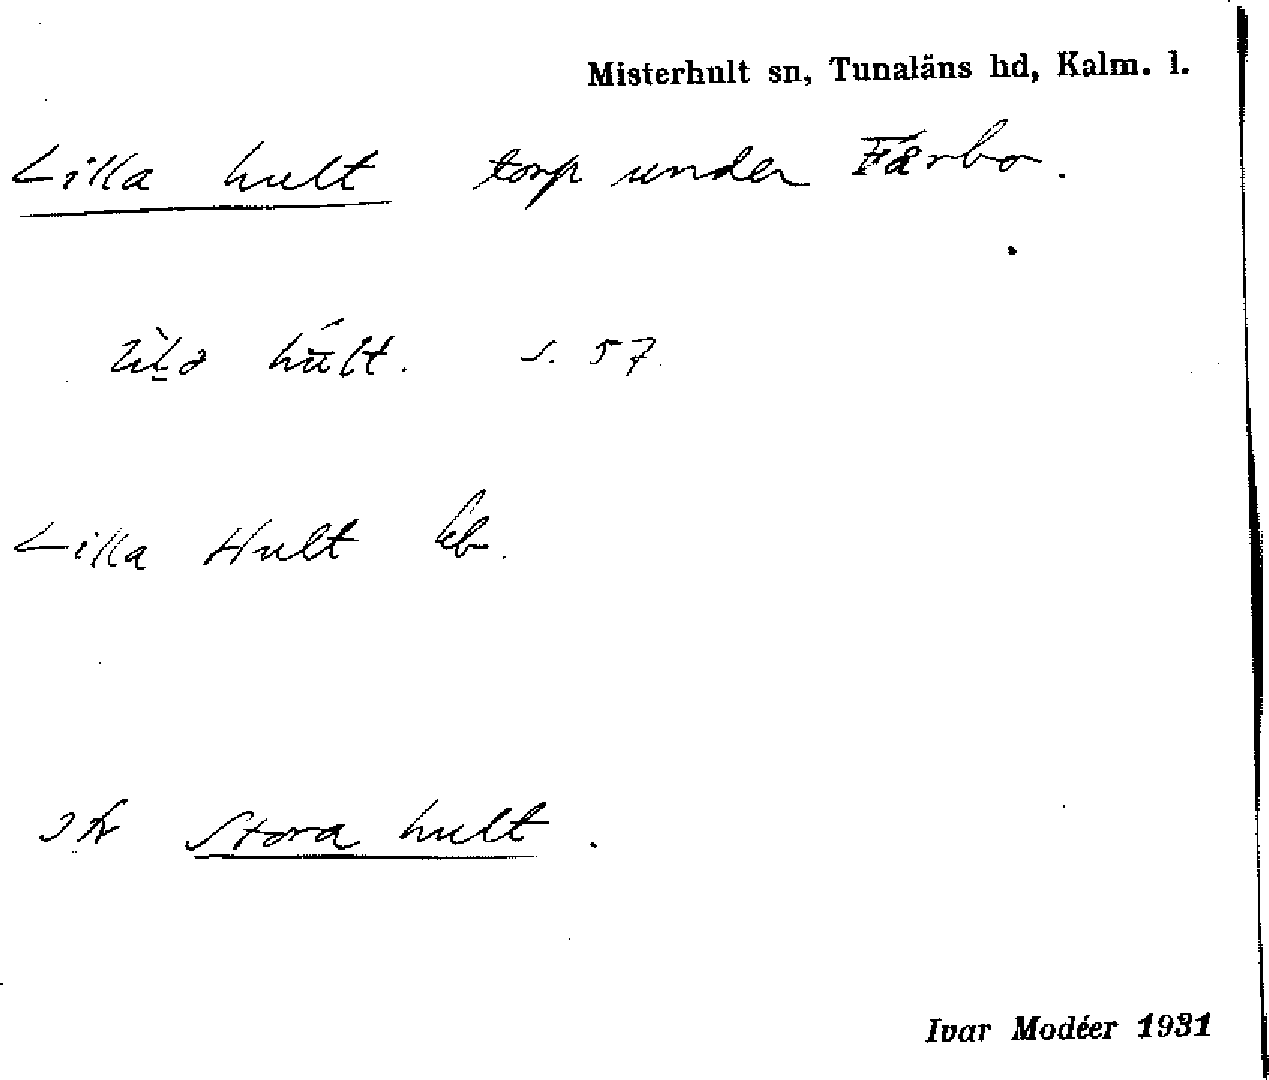 Misterhult sn, Tunaläns hd, Kalm. l.
Lilla hult torp under Färbo.
hult. s. 57.
Lilla Hult kb.
Stora hult.
Ivar Modéer 1931